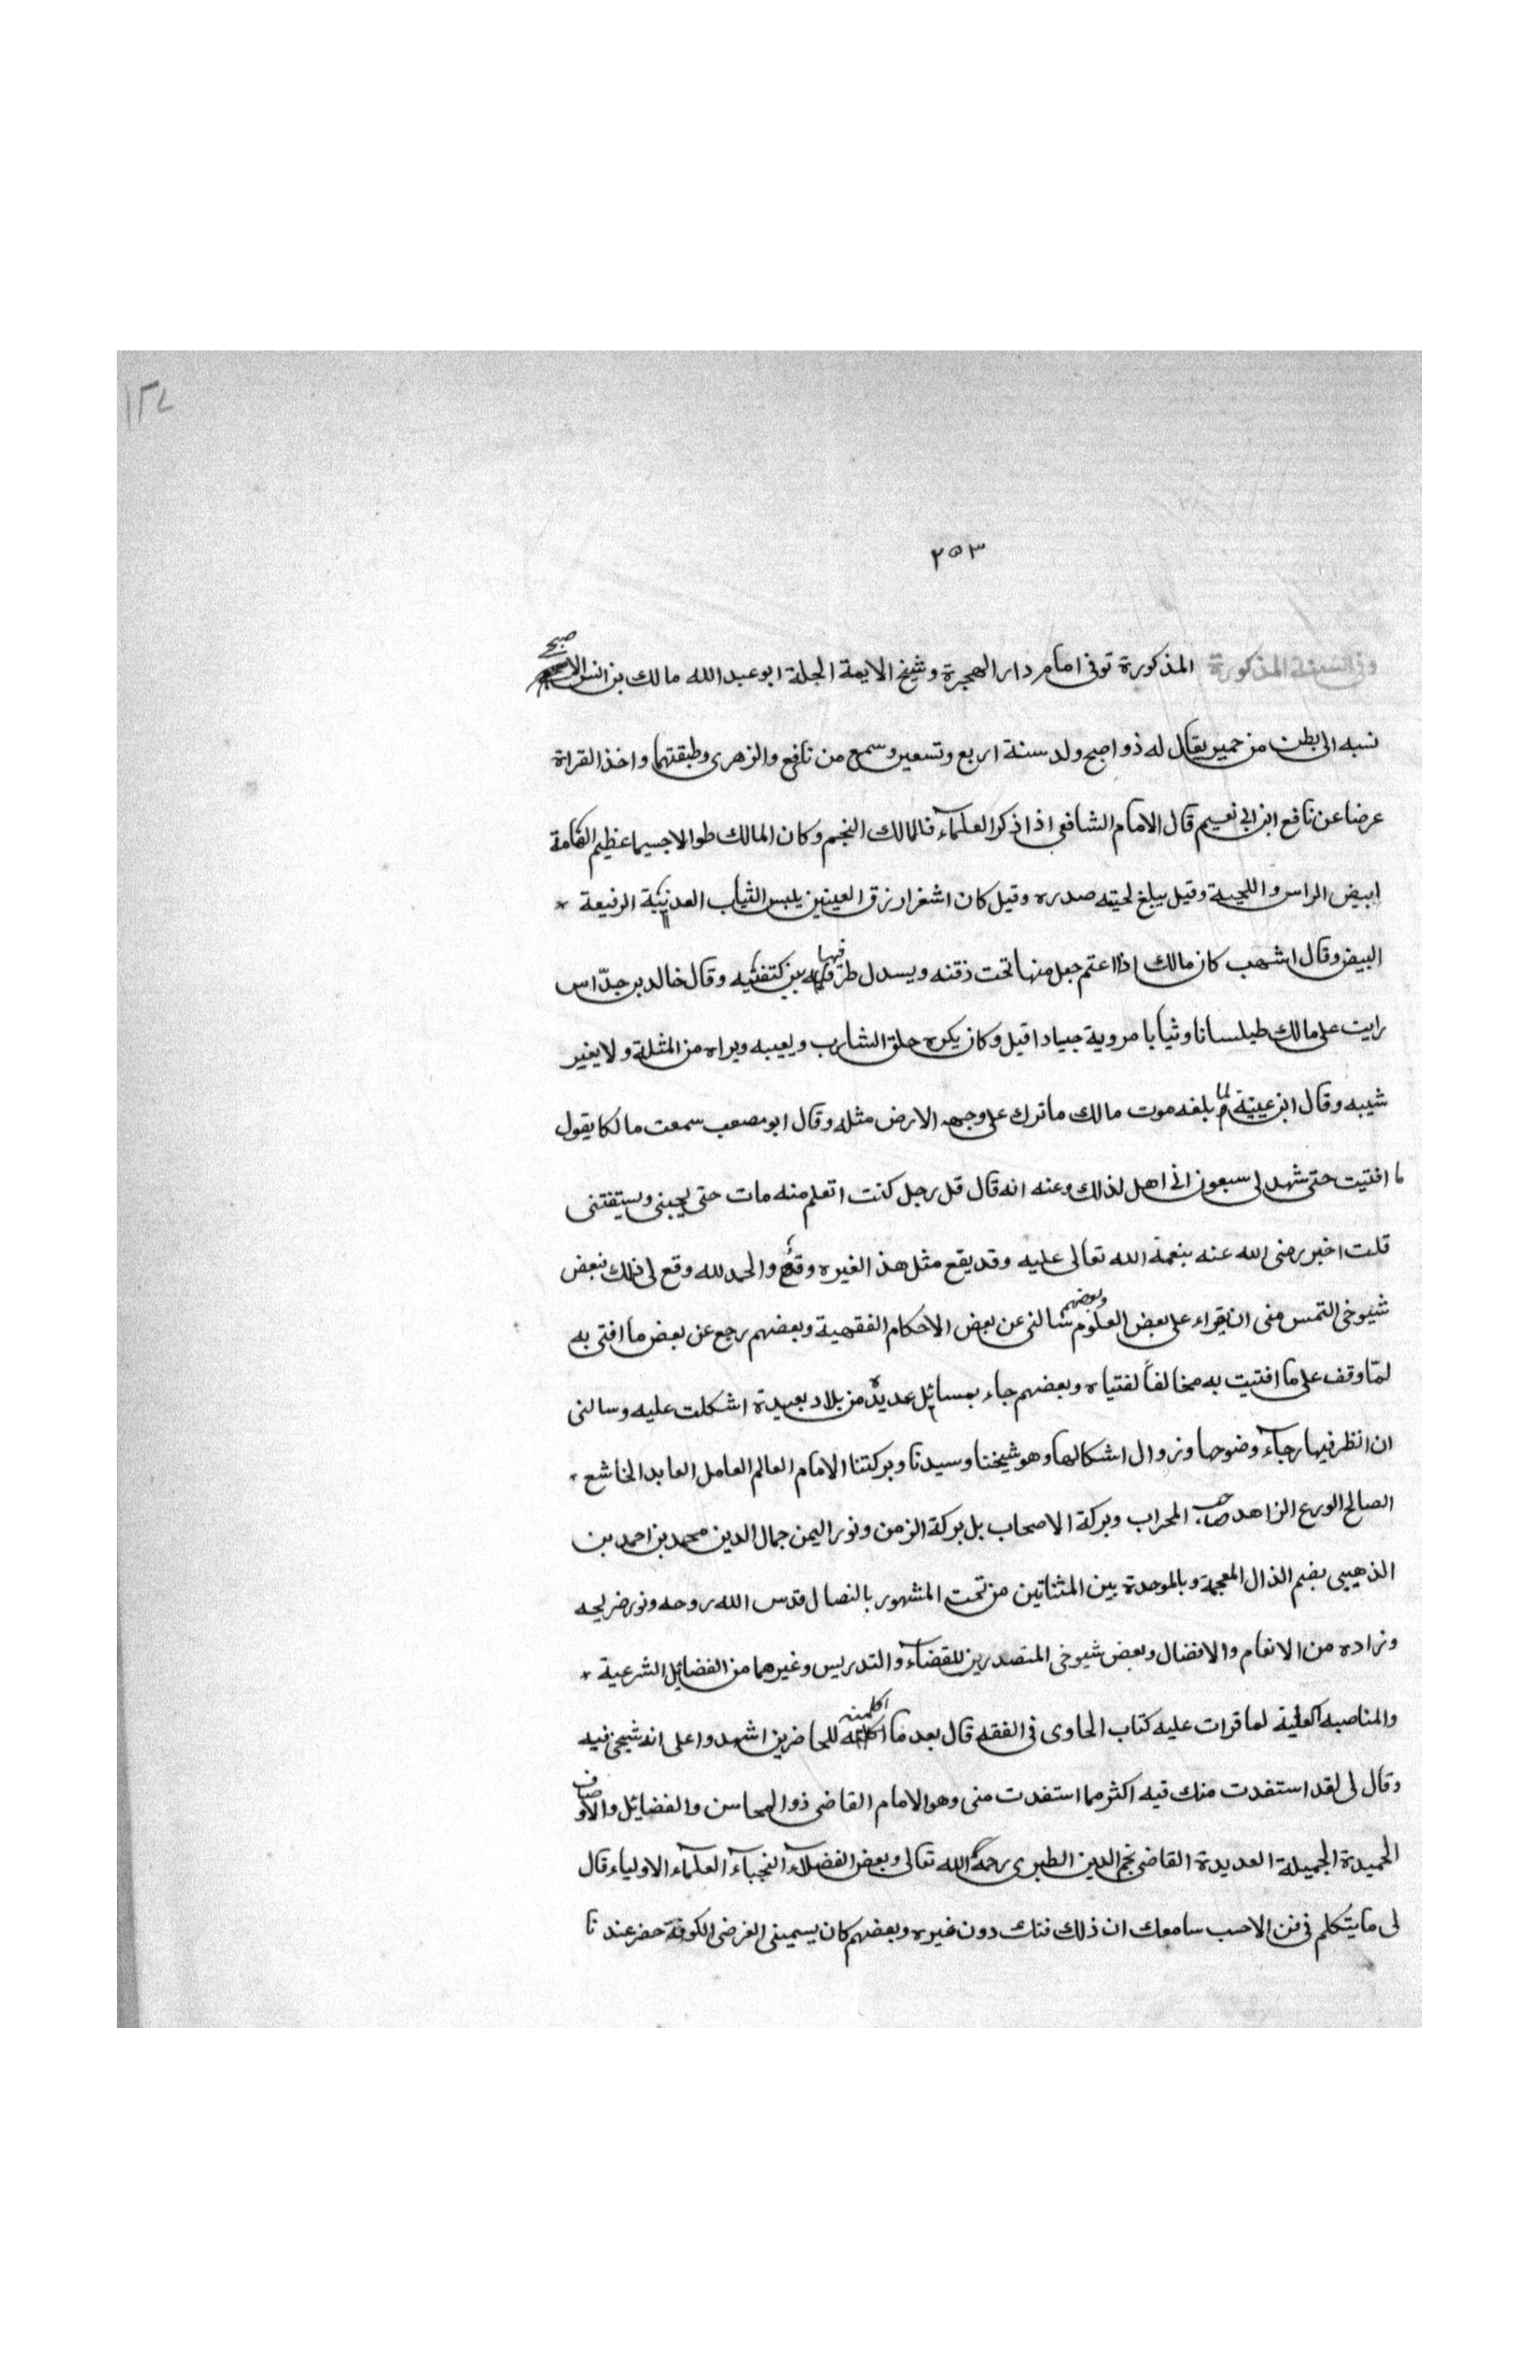 ١٢٧
٢٥٣
وفي السنة المذكورة المذكورة توفى امام دار الهجرة وشيخ الايمة الجلة ابو عبد الله مالك بن انس الاصبحي
نسبه الى بطن من حمير يقال له ذو اصبح ولد سنة اربع وتسعين وسمع من نافع والزهرى وطبقتهما واخذ القراة
عرضا عن نافع ابن ابى نعيم قال الامام الشافعى اذا ذكر العلمآء فمالك النجم وكان المالك طوالا جسيما عظيم الهامة
ابيض الراس واللحية وقيل يبلغ لحيته صدره وقيل كان اشقر ازرق العينين يلبس الثياب العدنية الرفيعة *
البيض وقال اشهب كان مالك اذا اعتم جعل منها تحت ذقنه ويسدل طرفيها بين كتفيه وقال خالد بن خدّاس
رايت على مالك طيلسانا وثيابا مروية جيادا قيل وكان يكره حلق الشارب ويعيبه ويراه من المثلة ولا يغير
شيبه وقال ابن عيينة لما بلغه موت مالك ما ترك على وجه الارض مثله وقال ابو مصعب سمعت مالكا يقول
ما افتيت حتى شهد لى سبعون انى اهل لذلك وعنه انه قال قل رجل كنت اتعلم منه مات حتى يجيبنى ويستفتنى
قلت اخبر رضى الله عنه بنعمة الله تعالى عليه وقد يقع مثل هذا لغيره وقع والحمد لله وقع لى ذلك فبعض
شيوخى التمس منى ان يقراء على بعض العلوم وبعضهم سالنى عن بعض الاحكام الفقهية وبعضهم رجع عن بعض ما افتى به
لمّا وقف على ما افتيت به مخالفاً لفتياه وبعضهم جاء بمسائل عديدة من بلاد بعيدة اشكلت عليه وسالنى
ان انظر فيها رجآء وضوحها وزوال اشكالها وهو شيخنا وسيدنا وبركتنا الامام العالم العامل العابد الخاشع *
الصالح الورع الزاهد صاحب المحراب وبركة الاصحاب بل بركة الزمن ونور اليمن جمال الدين محمد بن احمد بن
الذهيبى بضم الذال المعجمة وبالموحدة بين المثناتين من تحت المشهور بالنصال قدس الله روحه ونور ضريحه
وزاده من الانعام والافضال وبعض شيوخى المتصدرين للقضآء والتدريس وغيرهما من الفضايل الشرعية *
والمناصبه العلية لما قرات عليه كتاب الحاوى فى الفقه قال بعد ما اكملته للحاضرين اشهدوا على انه شيخى فيه
وقال لى لقد استفدت منك فيه اكثر مما استفدت منى وهو الامام القاضى ذو المحاسن والفضائل والاوصاف
الحميدة الجميلة العديدة القاضى نجم الدين الطبرى رحمة الله تعالى وبعض الفضلآء النجبآء العلمآء الاولياء قال
لى ما يتكلم فى فن الا حسب سامعك ان ذلك فنك دون غيره وبعضهم كان يسمينى الفرضى الكوفة حضر عندنا